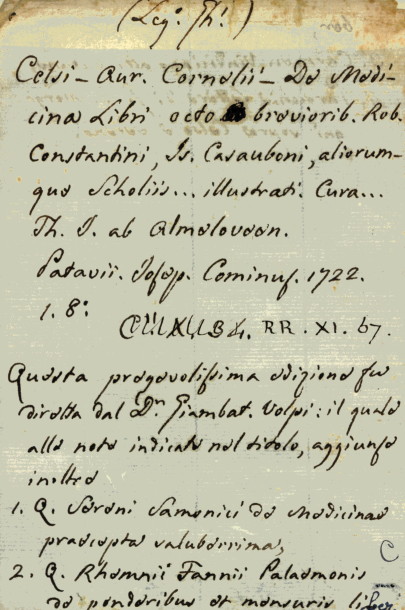 (Leg. Th.)
Celsi - Aur. Cornelii - De Medi-
cina Libri octo breviorib. Rob.
Constantini, Is. Casauboni, aliorum-
que Scholiis... illustrati. Cura...
Th. J. ab Almeloveen.
Patavii. Josep. Cominus. 1722.
1. 8°.
RR. XI. 67.
Questa pregevolissima edizione fu
diretta dal Dn Giambat. Volpi: il quale
alle note indicate nel titolo, aggiunse
inoltre
1. Q. Sereni Samonici de Medicinae
praecepta saluberrima,
C
2. Q. Rhemnii Fannii Palaemonis
de ponderibus et mensuris